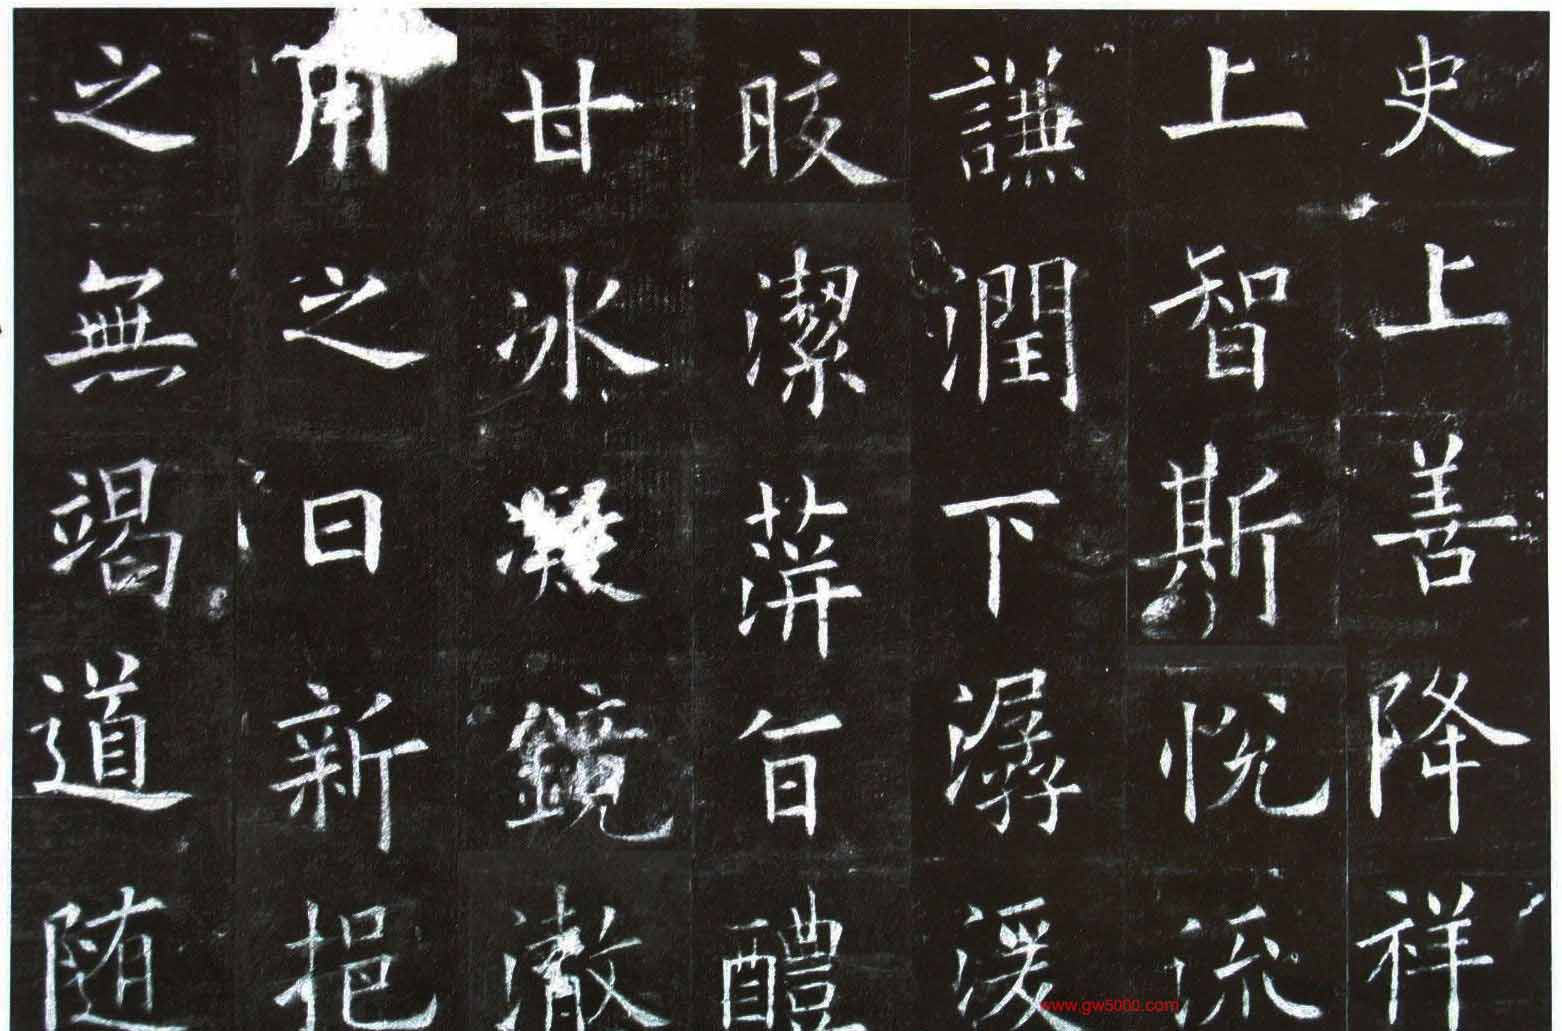 史上善降祥
上智斯悅流
謙潤下潺湲
晈潔蓱旨醴
甘冰凝鏡澈
用之日新挹
之無竭道随
www.gw5000.com